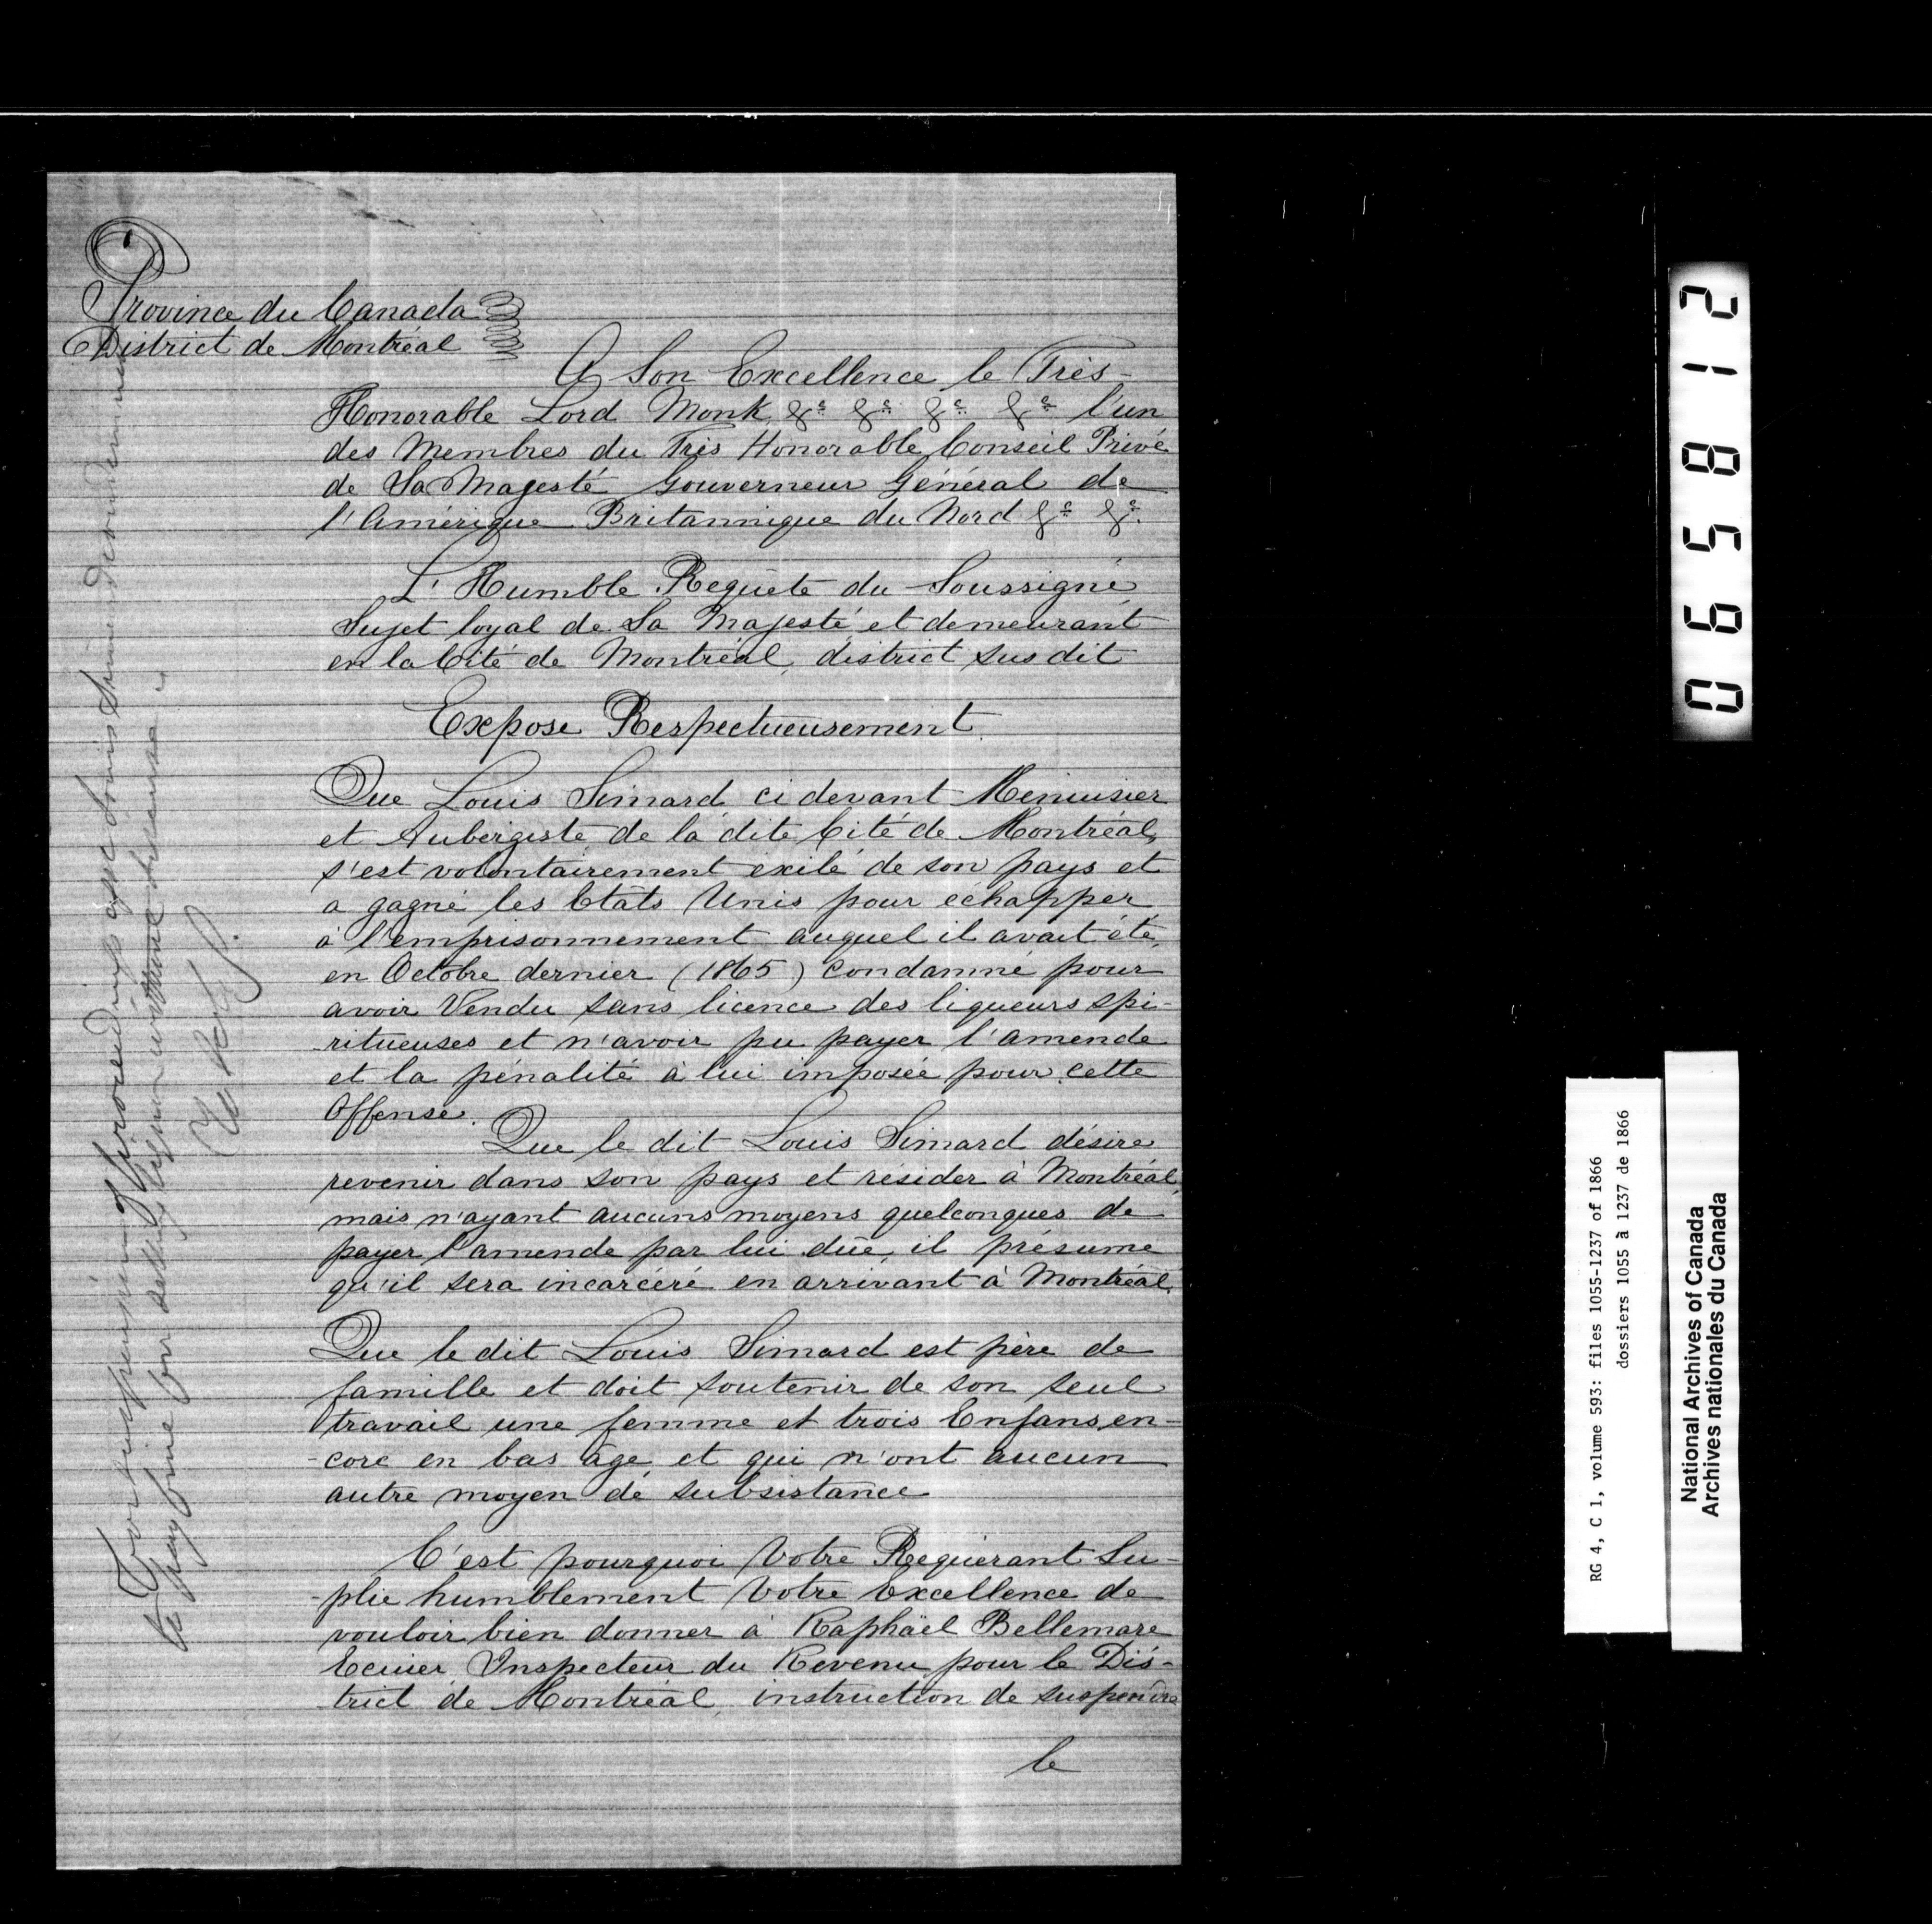 Province du Canada
District de Montréal
A Son Excellence le Très-
Honorable Lord Monk &c. &c. &c. &c. l'un
des Membres du Très Honorable Conseil Privé
de Sa Majesté Gouverneur Général de
l'Amérique Britannique du Nord &c. &c.
L'Humble Requète du Soussigné
Sujet loyal de Sa Majesté et demeurant
en la Cité de Montréal, district susdit
Expose Respectueusement.
Que Louis Simard ci devant Menuisier
et Aubergiste de la dite Cité de Montréal,
s'est volontairement exilé de son pays et
a gagné les Etats Unis pour échapper
à l'emprisonnement auquel il avait été,
en Octobre dernier (1865) condamné pour
avoir Vendu sans licence des liqueurs spi-
ritueuses et n'avoir pu payer l'amende
et la pénalité à lui imposée pour cette
Offense.
Que le dit Louis Simard désire
revenir dans son pays et résider à Montréal,
mais n'ayant aucuns moyens quelconques de
payer l'amende par lui dûe, il présume
qu'il sera incarcéré en arrivant à Montréal.
Que le dit Louis Simard est père de
famille et doit soutenir de son seul
travail une femme et trois Enfans en-
-core en bas âge et qui n'ont aucun
autre moyen de subsistance
C'est pourquoi Votre Requérant Su-
-plie humblement Votre Excellence de
vouloir bien donner à Raphaël Bellemare
Ecuier Inspecteur du Revenu pour le Dis-
-trict de Montréal, instruction de suspendre
le
For suspension of proceedings against Louis Simard
to pay fine for selling without license
065812
RG 4, C 1, volume 593: files 1055-1237 of 1866
dossiers 1055 à 1237 de 1866
National Archives of Canada
Archives nationales du Canada